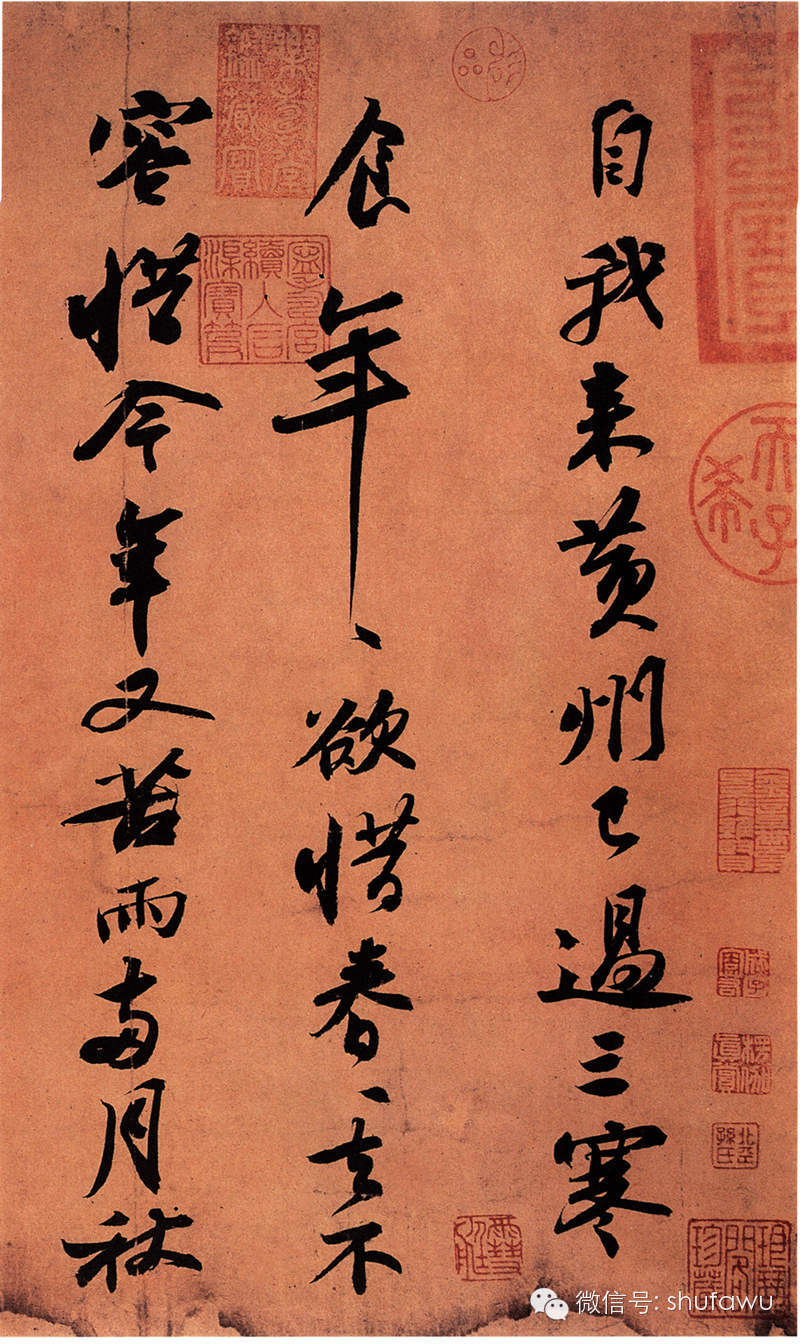 自我来黄州已過三寒
食年、欲惜春、去不
容惜今年又苦雨兩月秋
北平孫氏
微信号: shufawu